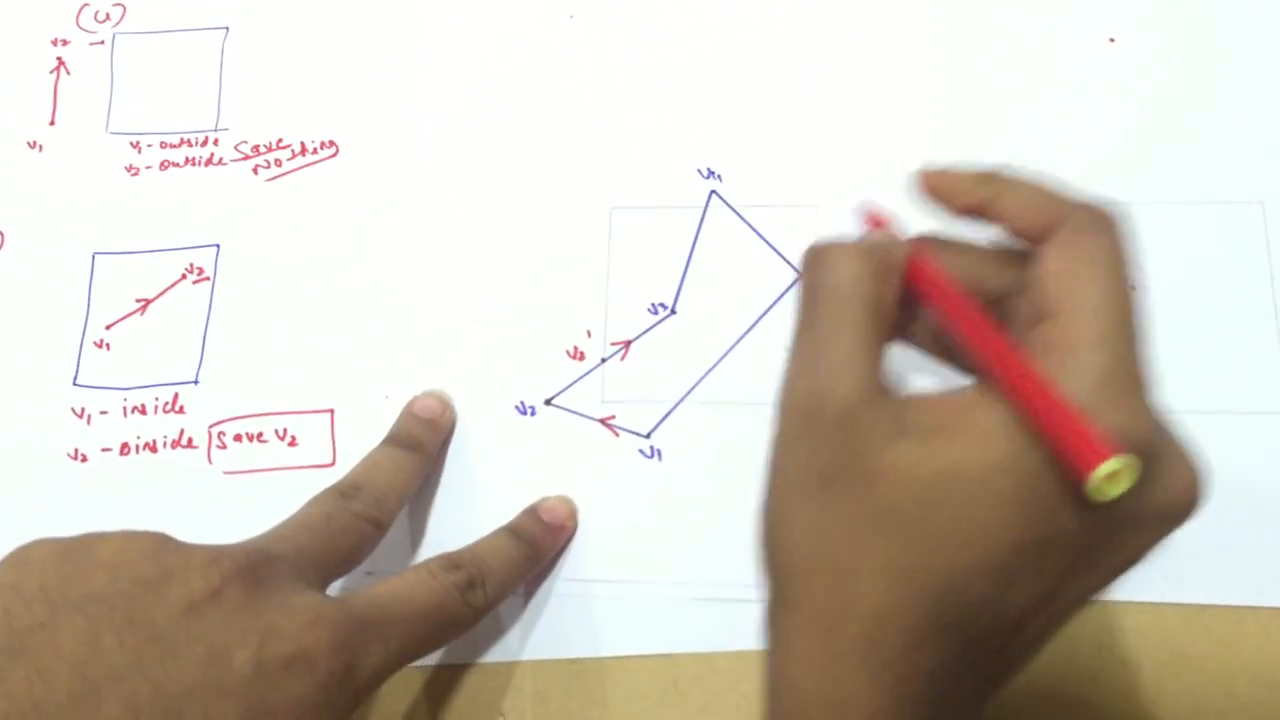 (ii)
v2
v1
v1 - outside
v2 - outside Save
Nothing
v2
v1
v1 - inside
v2 - inside Save v2
v4
v3
v2'
v2
v1